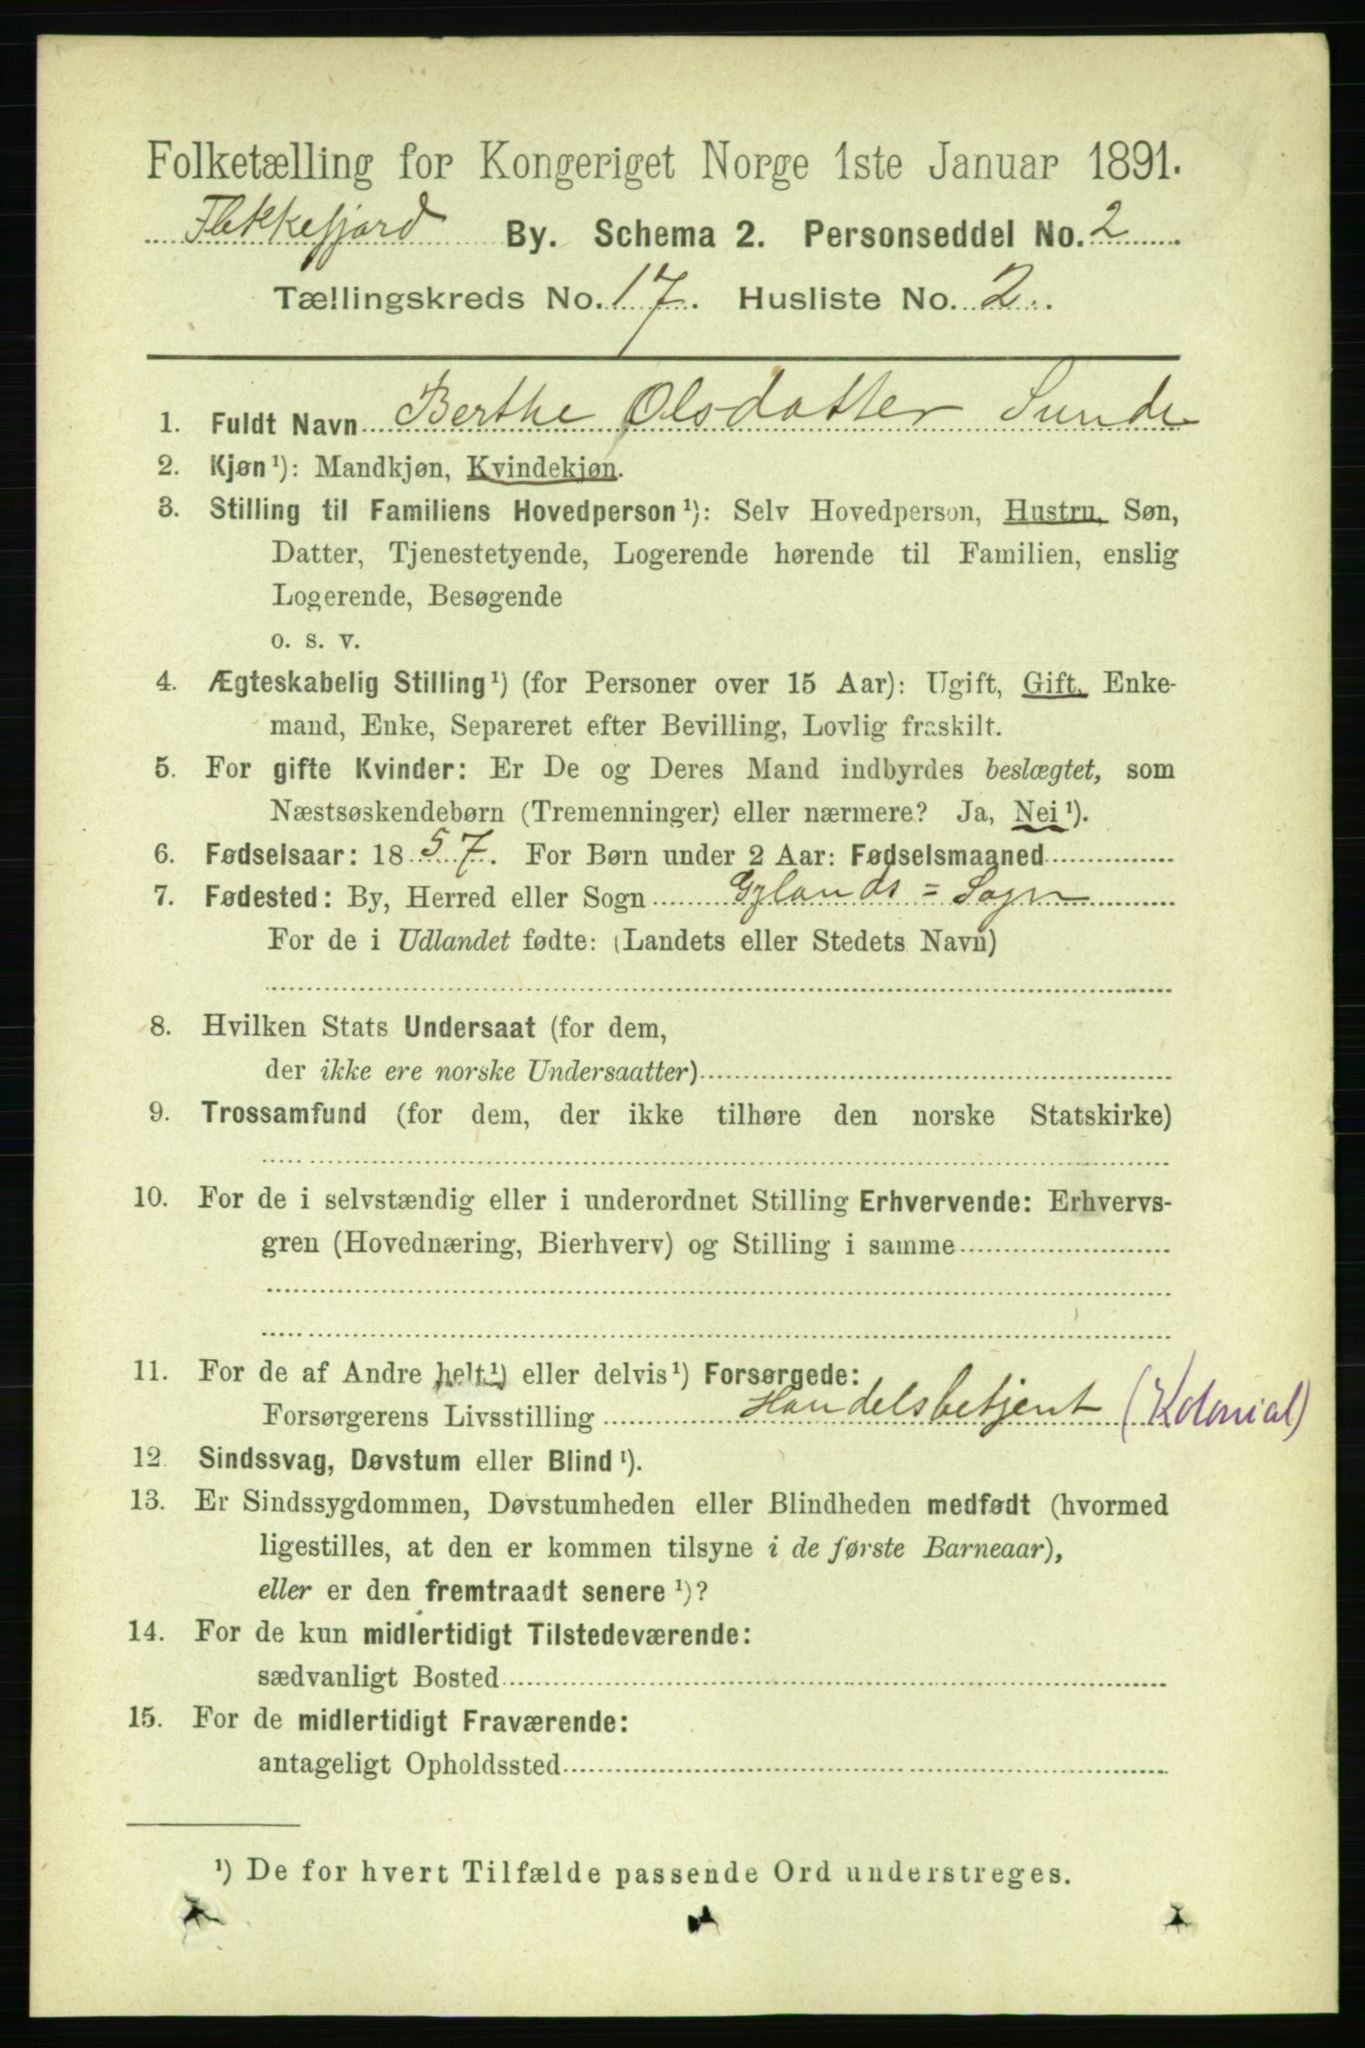 Folketælling for Kongeriget Norge 1ste Januar 1891.
Flekkefjord By. Schema 2. Personseddel No. 2
Tællingskreds No. 17. Husliste No. 2.
1. Fuldt Navn Berthe Olsdatter Sunde
2. Kjøn¹): Mandkjøn, Kvindekjøn.
3. Stilling til Familiens Hovedperson¹): Selv Hovedperson, Hustru, Søn,
Datter, Tjenestetyende, Logerende hørende til Familien, enslig
Logerende, Besøgende
o. s. v.
4. Ægteskabelig Stilling¹) (for Personer over 15 Aar): Ugift, Gift, Enke-
mand, Enke, Separeret efter Bevilling, Lovlig fraskilt.
5. For gifte Kvinder: Er De og Deres Mand indbyrdes beslægtet, som
Næstsøskendebørn (Tremenninger) eller nærmere? Ja, Nei¹).
6. Fødselsaar: 1857. For Børn under 2 Aar: Fødselsmaaned
7. Fødested: By, Herred eller Sogn Gylands = Sogn
For de i Udlandet fødte: (Landets eller Stedets Navn)
8. Hvilken Stats Undersaat (for dem,
der ikke ere norske Undersaatter)
9. Trossamfund (for dem, der ikke tilhøre den norske Statskirke)
10. For de i selvstændig eller i underordnet Stilling Erhvervende: Erhvervs-
gren (Hovednæring, Bierhverv) og Stilling i samme
11. For de af Andre helt¹) eller delvis¹) Forsørgede:
Forsørgerens Livsstilling Handelsbetjent (Kolonial)
12. Sindssvag, Døvstum eller Blind¹).
13. Er Sindssygdommen, Døvstumheden eller Blindheden medfødt (hvormed
ligestilles, at den er kommen tilsyne i de første Barneaar),
eller er den fremtraadt senere¹)?
14. For de kun midlertidigt Tilstedeværende:
sædvanligt Bosted
15. For de midlertidigt Fraværende:
antageligt Opholdssted
¹) De for hvert Tilfælde passende Ord understreges.